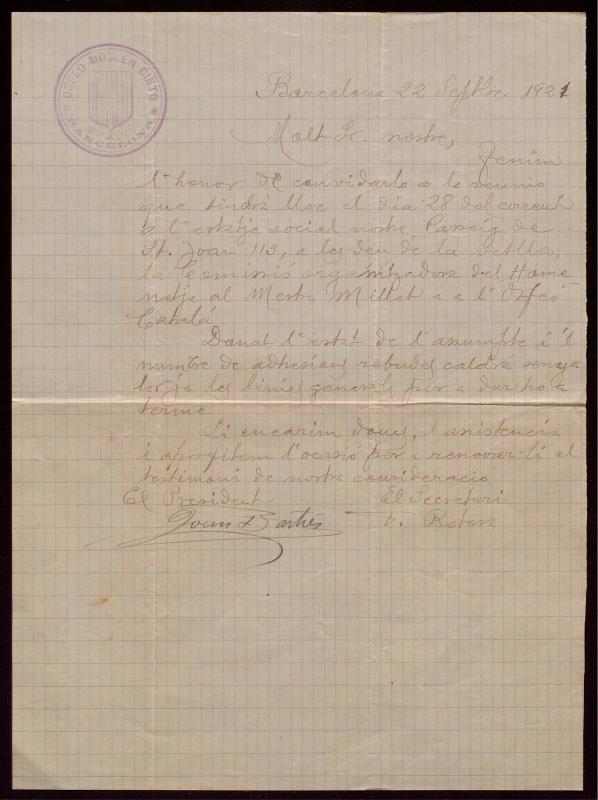 ORFEO MOSSEN CINTO
BARCELONA
Barcelona 22 Sepbre. 1921
Molt Sr. nostre,
Tenim
l'honor de convidarlo a la reunió
que tindrá lloc el dia 28 del corrent
a l'estatje social nostre Passeig de
St. Joan 113, a les deu de la vetlla,
la Comissió organitzadora del Home
natje al Mestre Millet i a l'Orfeó
Catalá
Donat l'estat de l'assumpte i 'l
numbre de adhesions rebudes caldrá senya
lar ja les linies generals per a dur ho a
terme.
Li encarim doncs, l'assistencia
i aprofitem l'ocasió per a renovar-li el
testimoni de nostra consideració
El President
El Secretari
Joan Bartrés